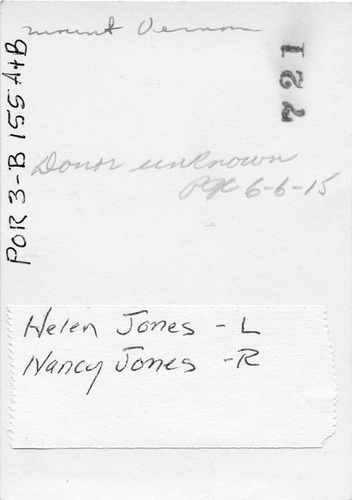 mount Vernon
721
POR 3-B 155 A+B
Donor unknown
6-6-15
Helen Jones - L
Nancy Jones - R